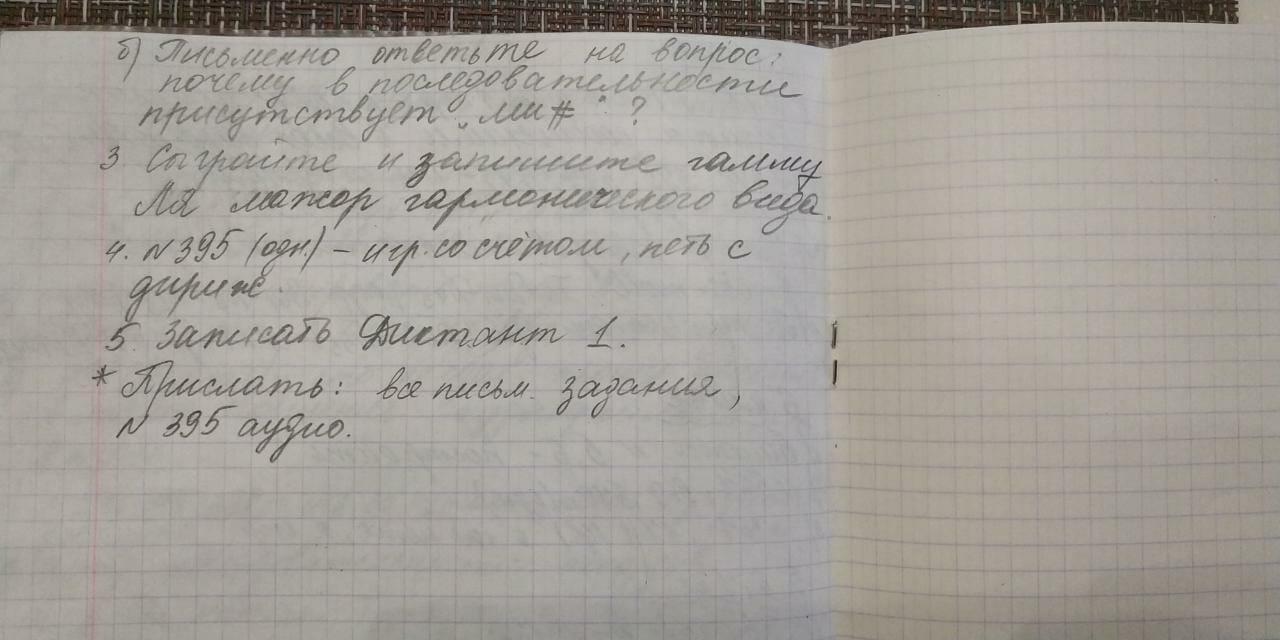 б) Письменно ответьте на вопрос:
почему в последовательности
присутствует „ми#" ?
3. Сыграйте и запишите гамму
Ля мажор гармонического вида.
4. N 395 (одн.) – игр. со счётом, петь с
дириж.
5. Записать Диктант 1.
* Прислать: все письм. задания,
N 395 аудио.